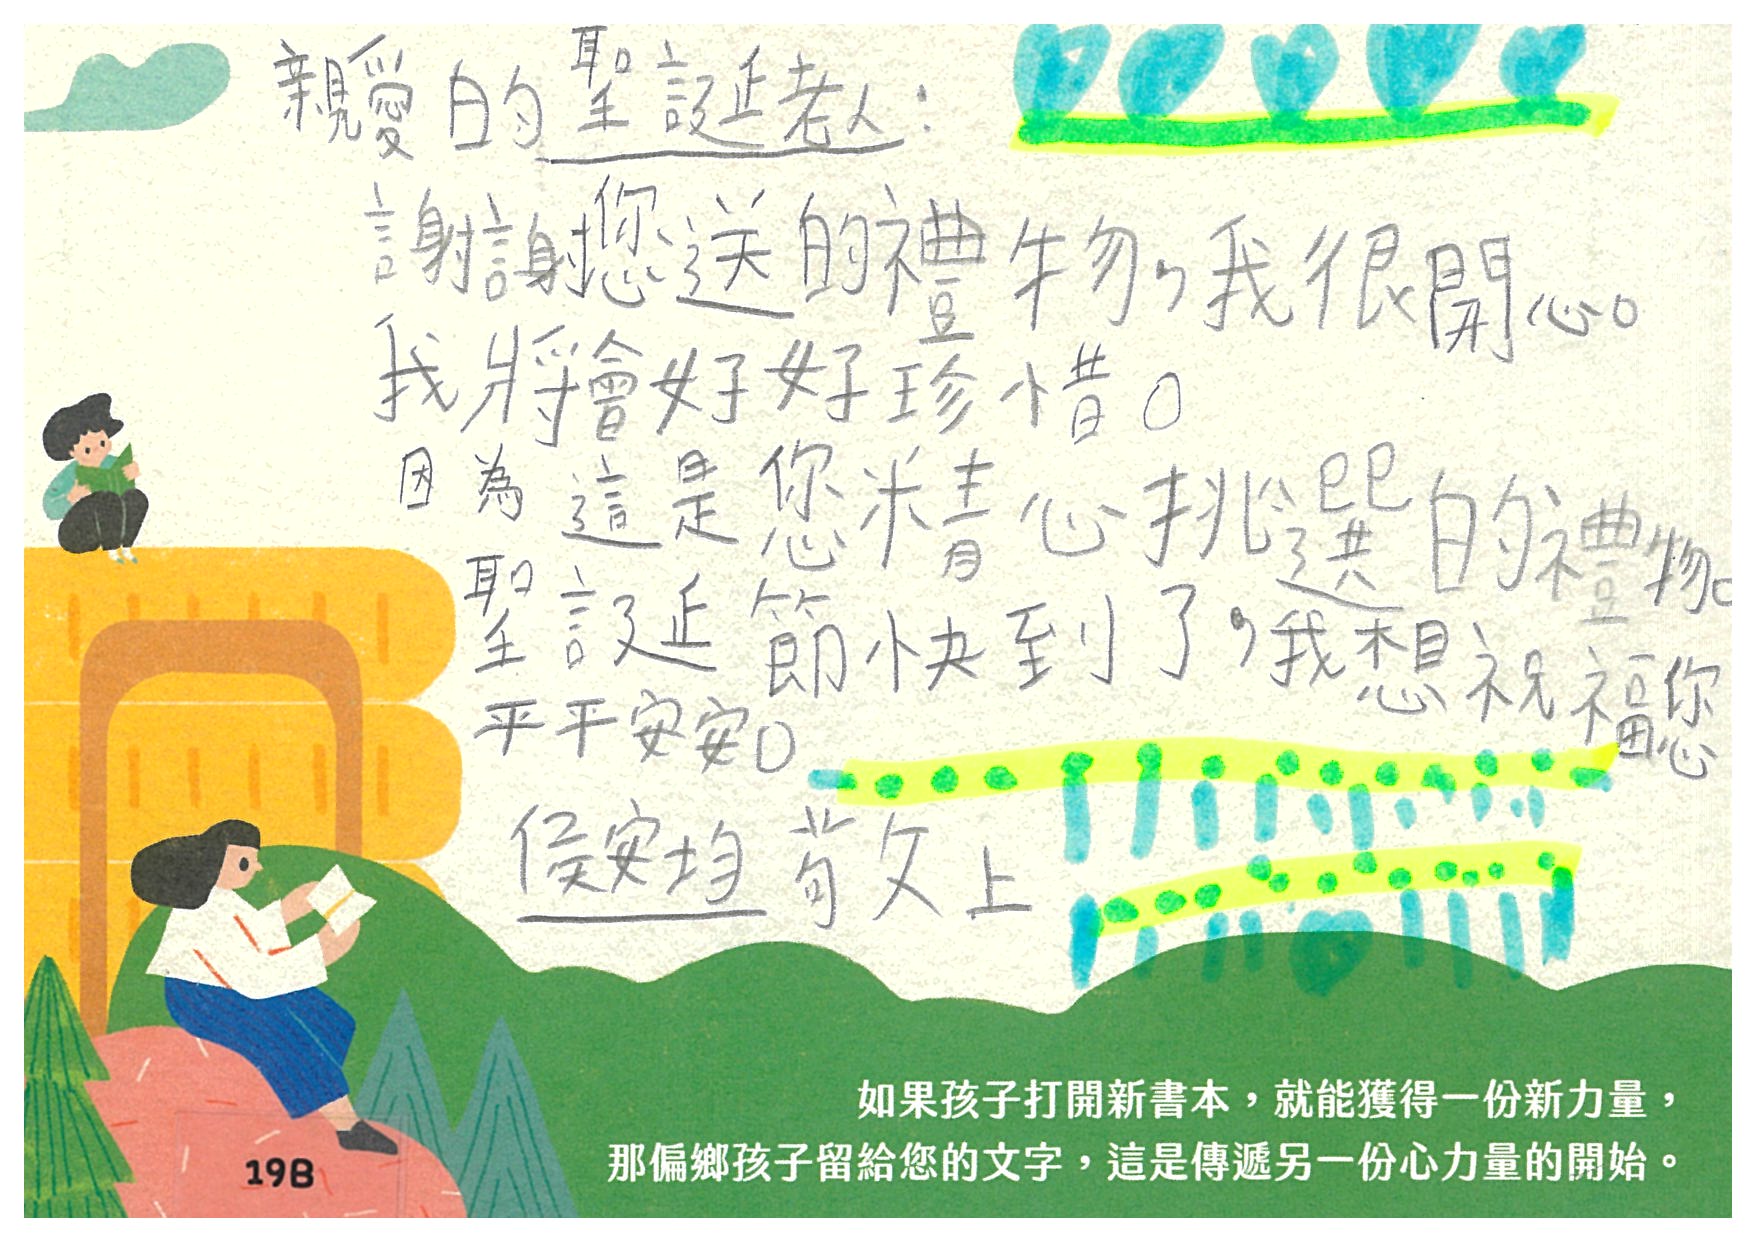 親愛的聖誕老人：
謝謝您送的禮物，我很開心。
我將會好好珍惜。
因為這是您精心挑選的禮物。
聖誕節快到了，我想祝福您
平平安安。
侯安均 敬上
如果孩子打開新書本，就能獲得一份新力量，
那偏鄉孩子留給您的文字，這是傳遞另一份心力量的開始。
19B